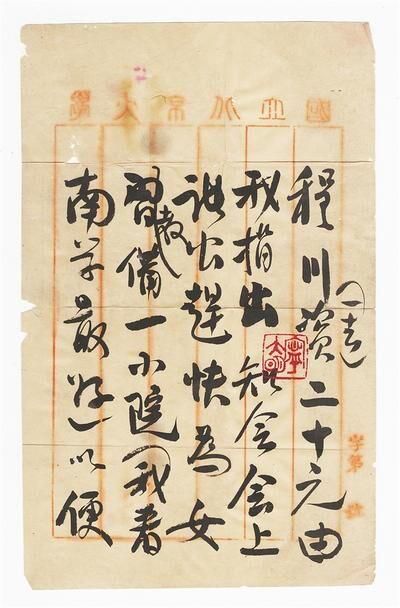 國立北京大學
程川資二十元由
我指出知会会上
諸公趕快為女
教習備一小院（我看
南学最好）以便
字第 號